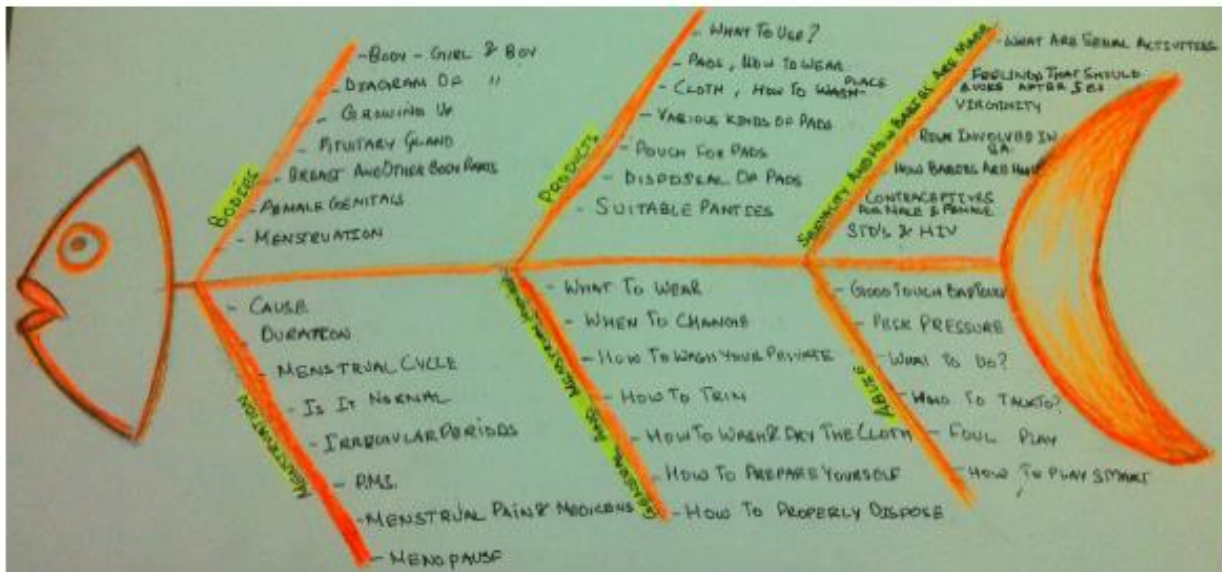 BODIES
- BODY - GIRL & BOY
- DIAGRAM OF "
- GROWING UP
- PITUITARY GLAND
- BREAST AND OTHER BODY PARTS
- FEMALE GENITALS
- MENSTRUATION
PRODUCTS
- WHAT TO USE?
- PADS, HOW TO WEAR
- CLOTH, HOW TO WASH - PLACE
- VARIOUS KINDS OF PADS
- POUCH FOR PADS
- DISPOSAL OF PADS
- SUITABLE PANTIES
SEXUALITY AND HOW BABIES ARE MADE
- WHAT ARE SEXUAL ACTIVITIES
FEELINGS THAT SHOULD
AFTER SEX
VIRGINITY
INVOLVED IN
HOW BABIES ARE
CONTRACEPTIVES
FOR MALE & FEMALE
STD'S & HIV
MENSTRUATION
- CAUSE
DURATION
- MENSTRUAL CYCLE
- IS IT NORMAL
- IRREGULAR PERIODS
- P.M.S.
- MENSTRUAL PAIN & MEDICENS
- MENOPAUSE
GENERAL AND MENSTRUAL
- WHAT TO WEAR
- WHEN TO CHANGE
- HOW TO WASH YOUR PRIVATE
- HOW TO TRIM
- HOW TO WASH & DRY THE CLOTH
- HOW TO PREPARE YOURSELF
- HOW TO PROPERLY DISPOSE
ABUSE
- GOOD TOUCH BAD TOUCH
- PEER PRESSURE
- WHAT TO DO?
- WHO TO TALK TO?
- FOUL PLAY
- HOW TO PLAY SMART